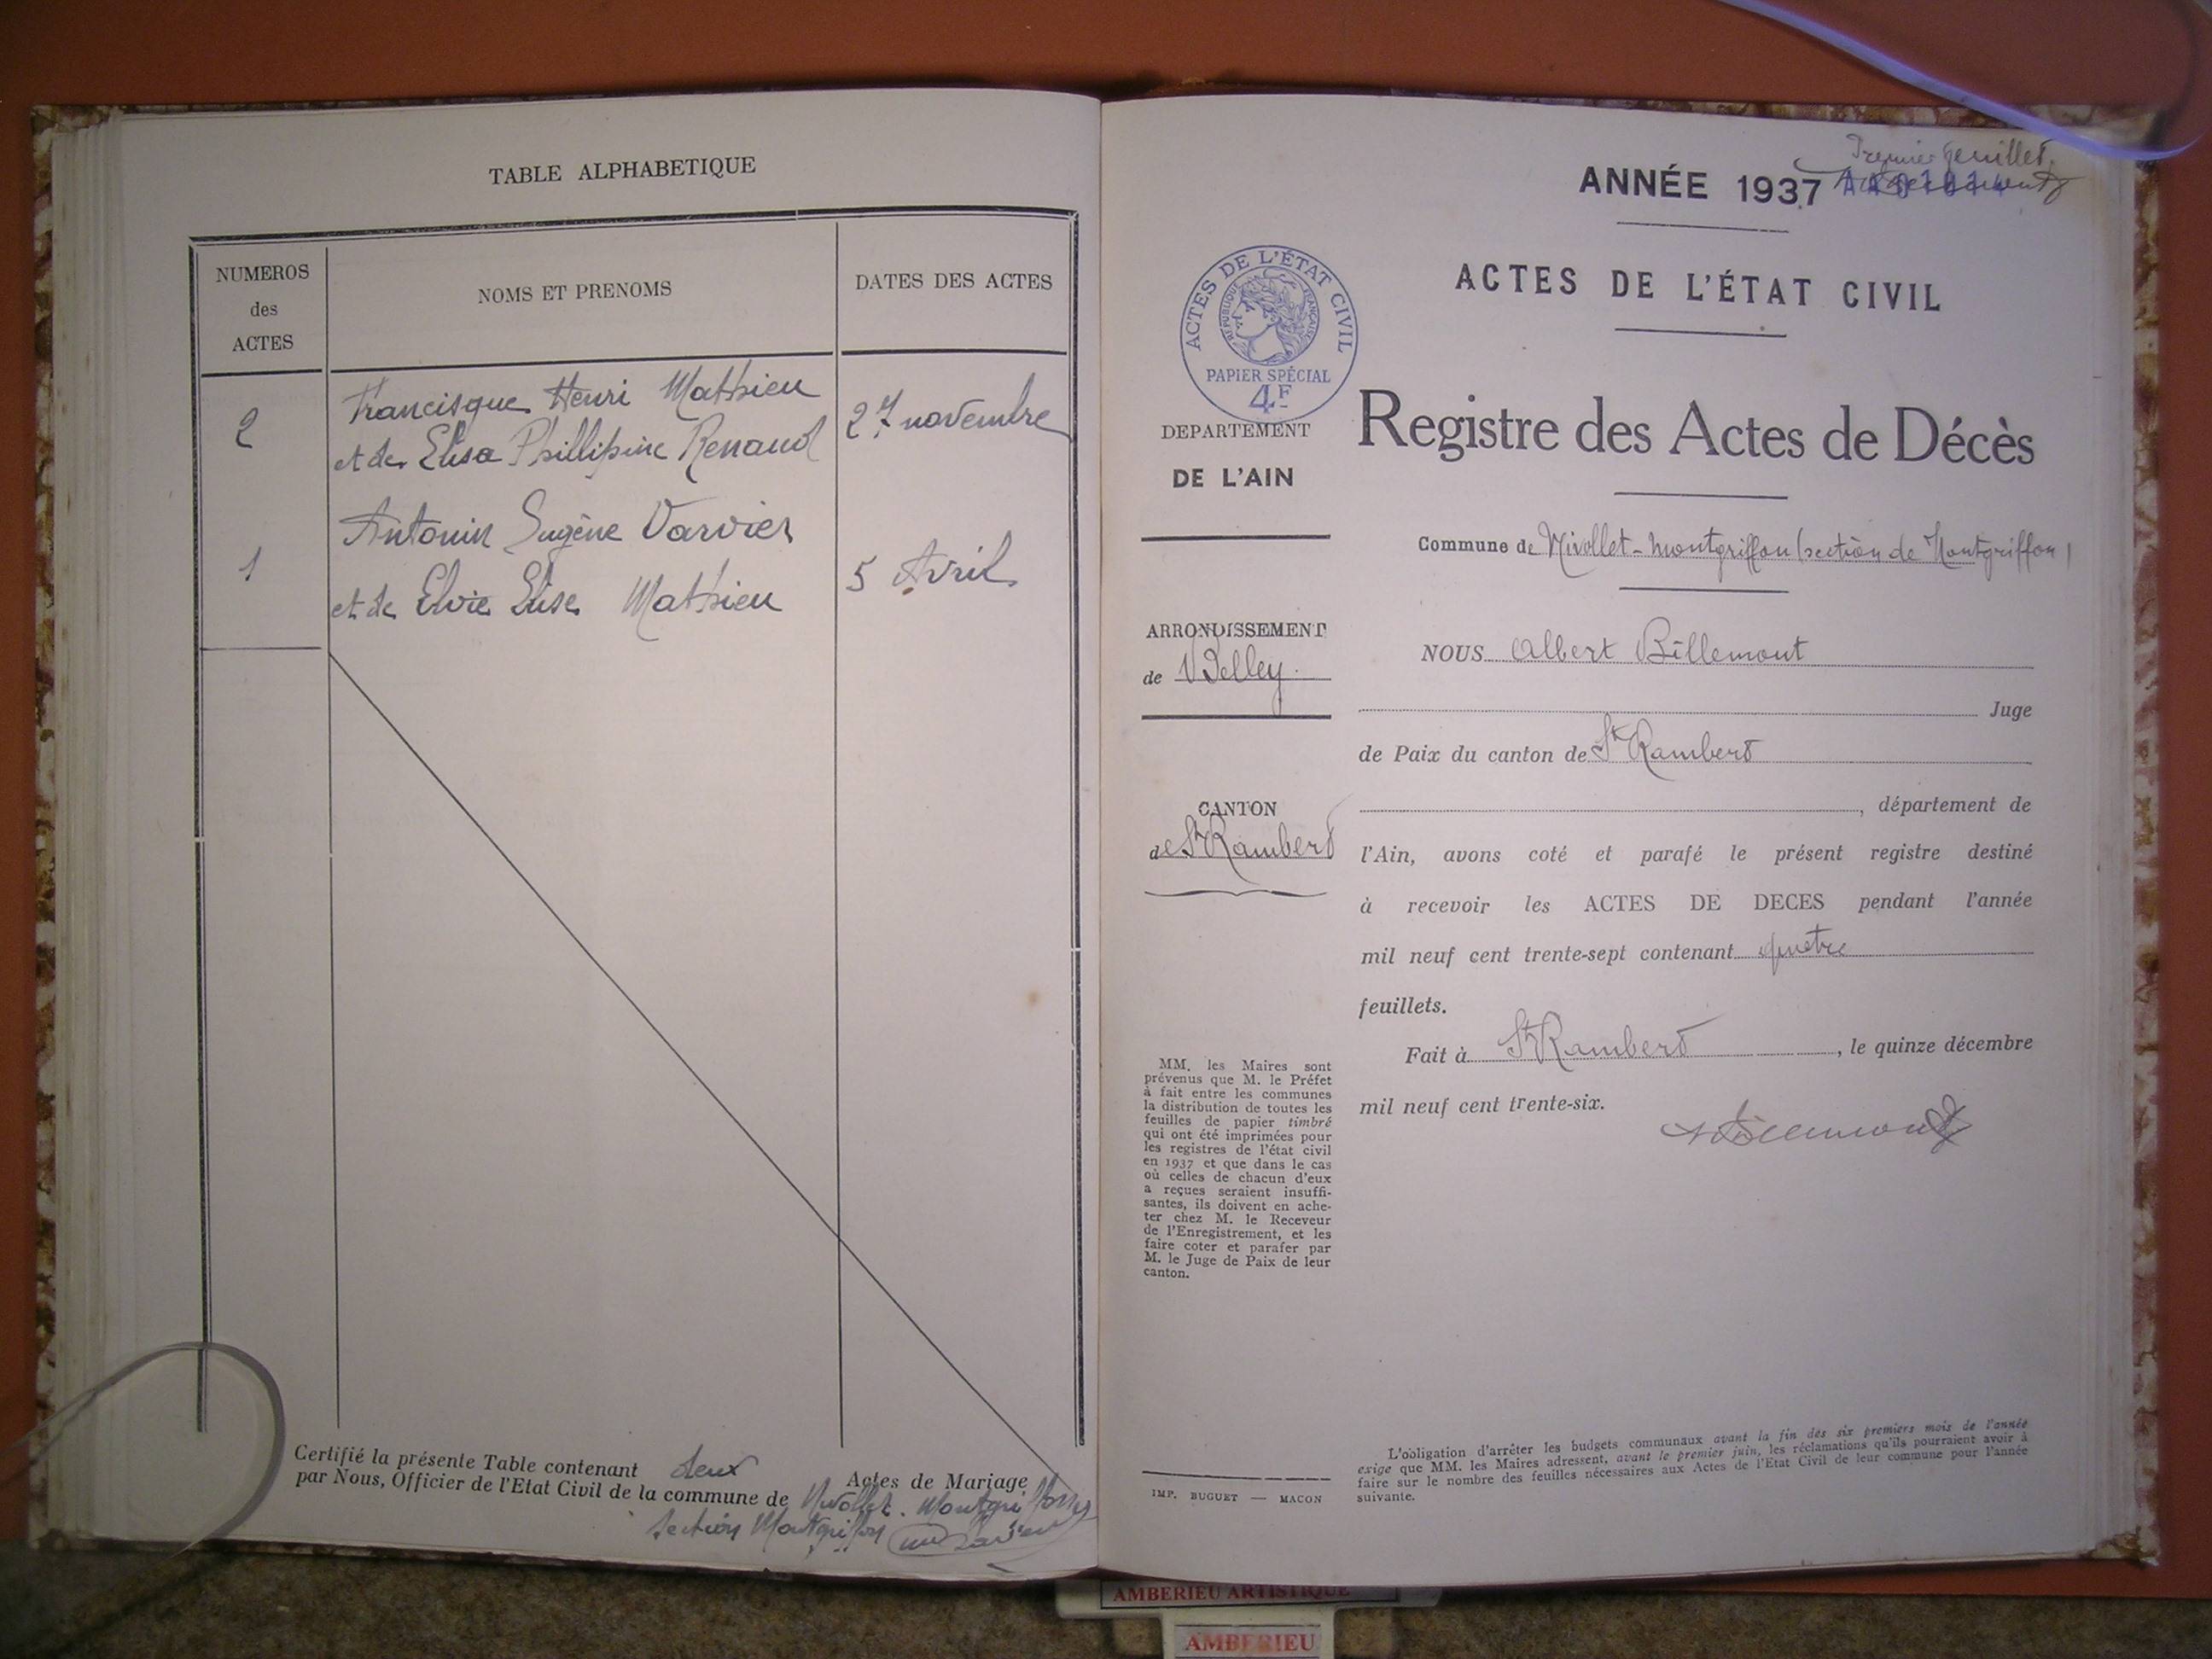 TABLE ALPHABETIQUE
NUMEROS
des
ACTES
NOMS ET PRENOMS
DATES DES ACTES
2
Francisque Henri Mathieu
et de Elisa Phillipine Renaud
27 novembre
1
Antonin Eugène Varvier
et de Elvie Elise Mathieu
5 Avril
Certifié la présente Table contenant deux Actes de Mariage
par Nous, Officier de l'Etat Civil de la commune de Nivollet. Montgriffon
Section Montgriffon
Premier feuillet
ANNÉE 1937
ACTES DE L'ÉTAT CIVIL
ACTES DE L'ÉTAT CIVIL
RÉPUBLIQUE FRANÇAISE
PAPIER SPÉCIAL
4F
Registre des Actes de Décès
DEPARTEMENT
DE L'AIN
Commune de Nivollet-Montgriffon (section de Montgriffon)
ARRONDISSEMENT
de Belley
NOUS Albert Billemont
Juge
de Paix du canton de St Rambert
CANTON
de St Rambert
, département de
l'Ain, avons coté et parafé le présent registre destiné
à recevoir les ACTES DE DECES pendant l'année
mil neuf cent trente-sept contenant quatre
feuillets.
Fait à St Rambert, le quinze décembre
mil neuf cent trente-six.
MM. les Maires sont
prévenus que M. le Préfet
à fait entre les communes
la distribution de toutes les
feuilles de papier timbré
qui ont été imprimées pour
les registres de l'état civil
en 1937 et que dans le cas
où celles de chacun d'eux
a reçues seraient insuffi-
santes, ils doivent en ache-
ter chez M. le Receveur
de l'Enregistrement, et les
faire coter et parafer par
M. le Juge de Paix de leur
canton.
IMP. BUGUET — MACON
L'obligation d'arrêter les budgets communaux avant la fin des six premiers mois de l'année
exige que MM. les Maires adressent, avant le premier juin, les réclamations qu'ils pourraient avoir à
faire sur le nombre des feuilles nécessaires aux Actes de l'Etat Civil de leur commune pour l'année
suivante.
AMBERIEU ARTISTIQUE
AMBERIEU